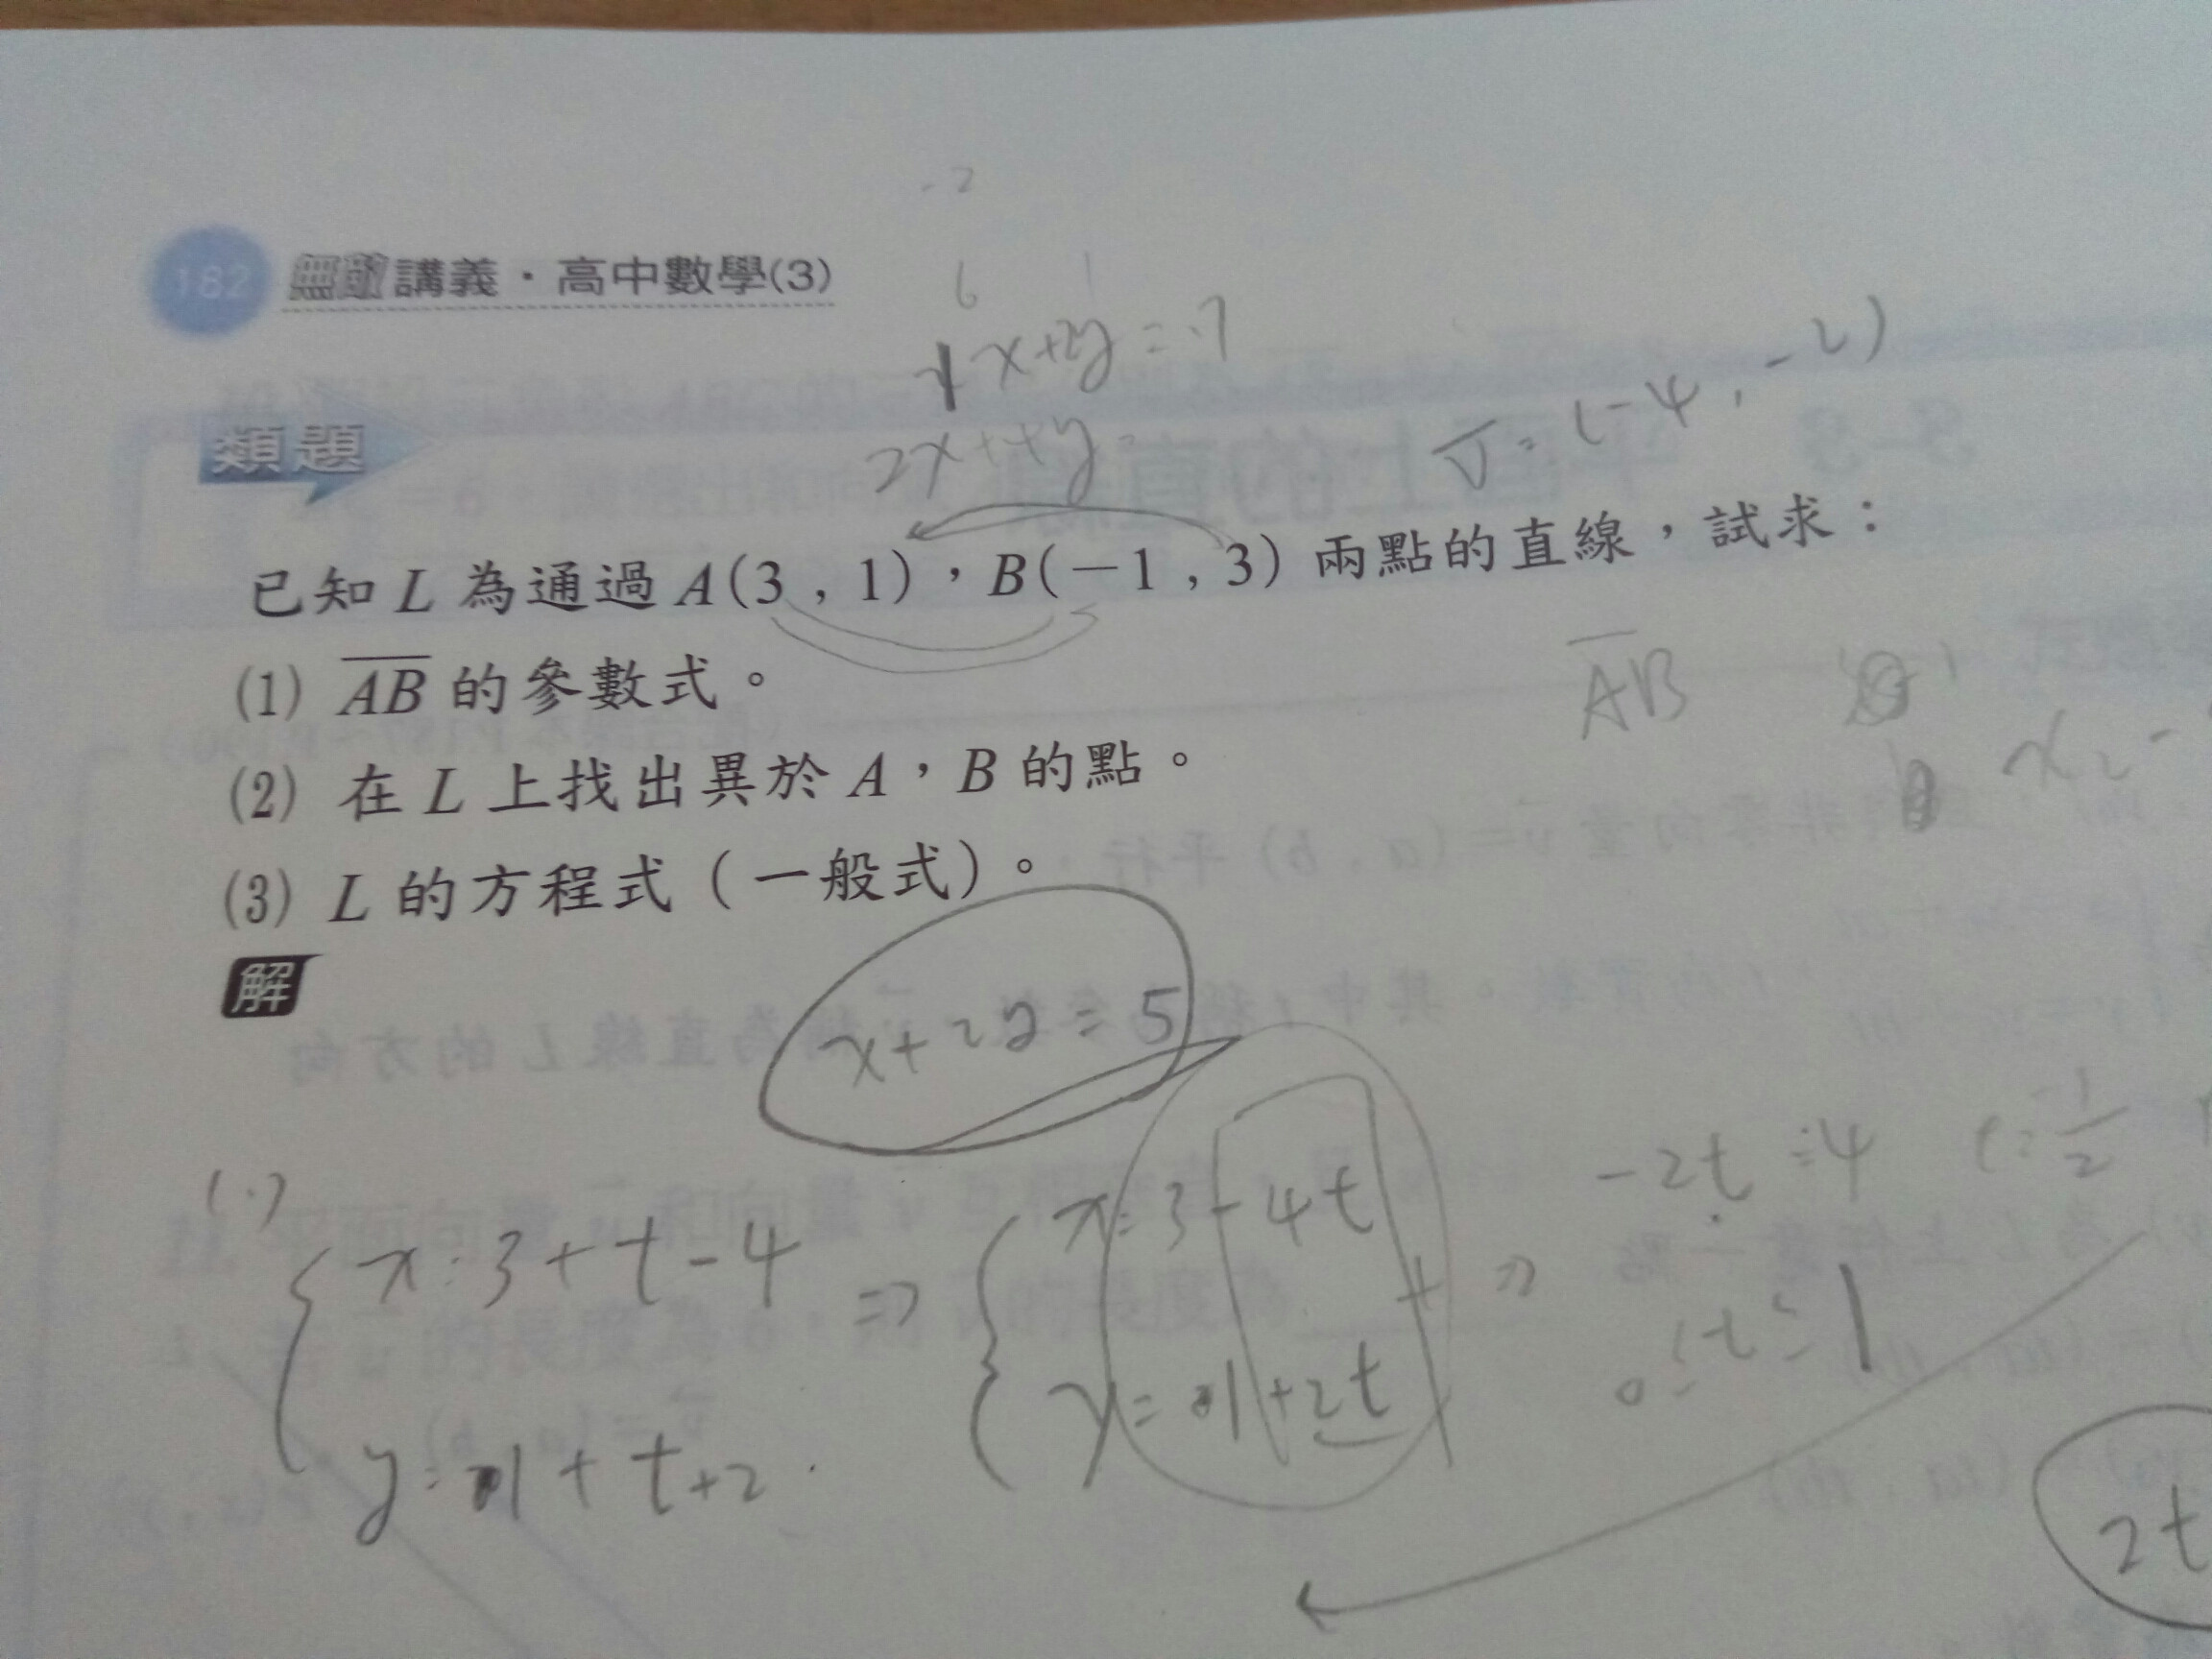 -2
182 無敵講義・高中數學(3)
6
x+2y=7
2x++y=
V=(-4,-2)
類題
已知 L 為通過 A(3 , 1),B(-1 , 3) 兩點的直線,試求:
(1) AB 的參數式。
AB
(2) 在 L 上找出異於 A,B 的點。
(3) L 的方程式(一般式)。
解
x+2y=5
(1)
x=3+t-4 => x=3-4t => -2t=4 t=1/2
y=1+t+2 y=1+2t 0≤t≤1
2t